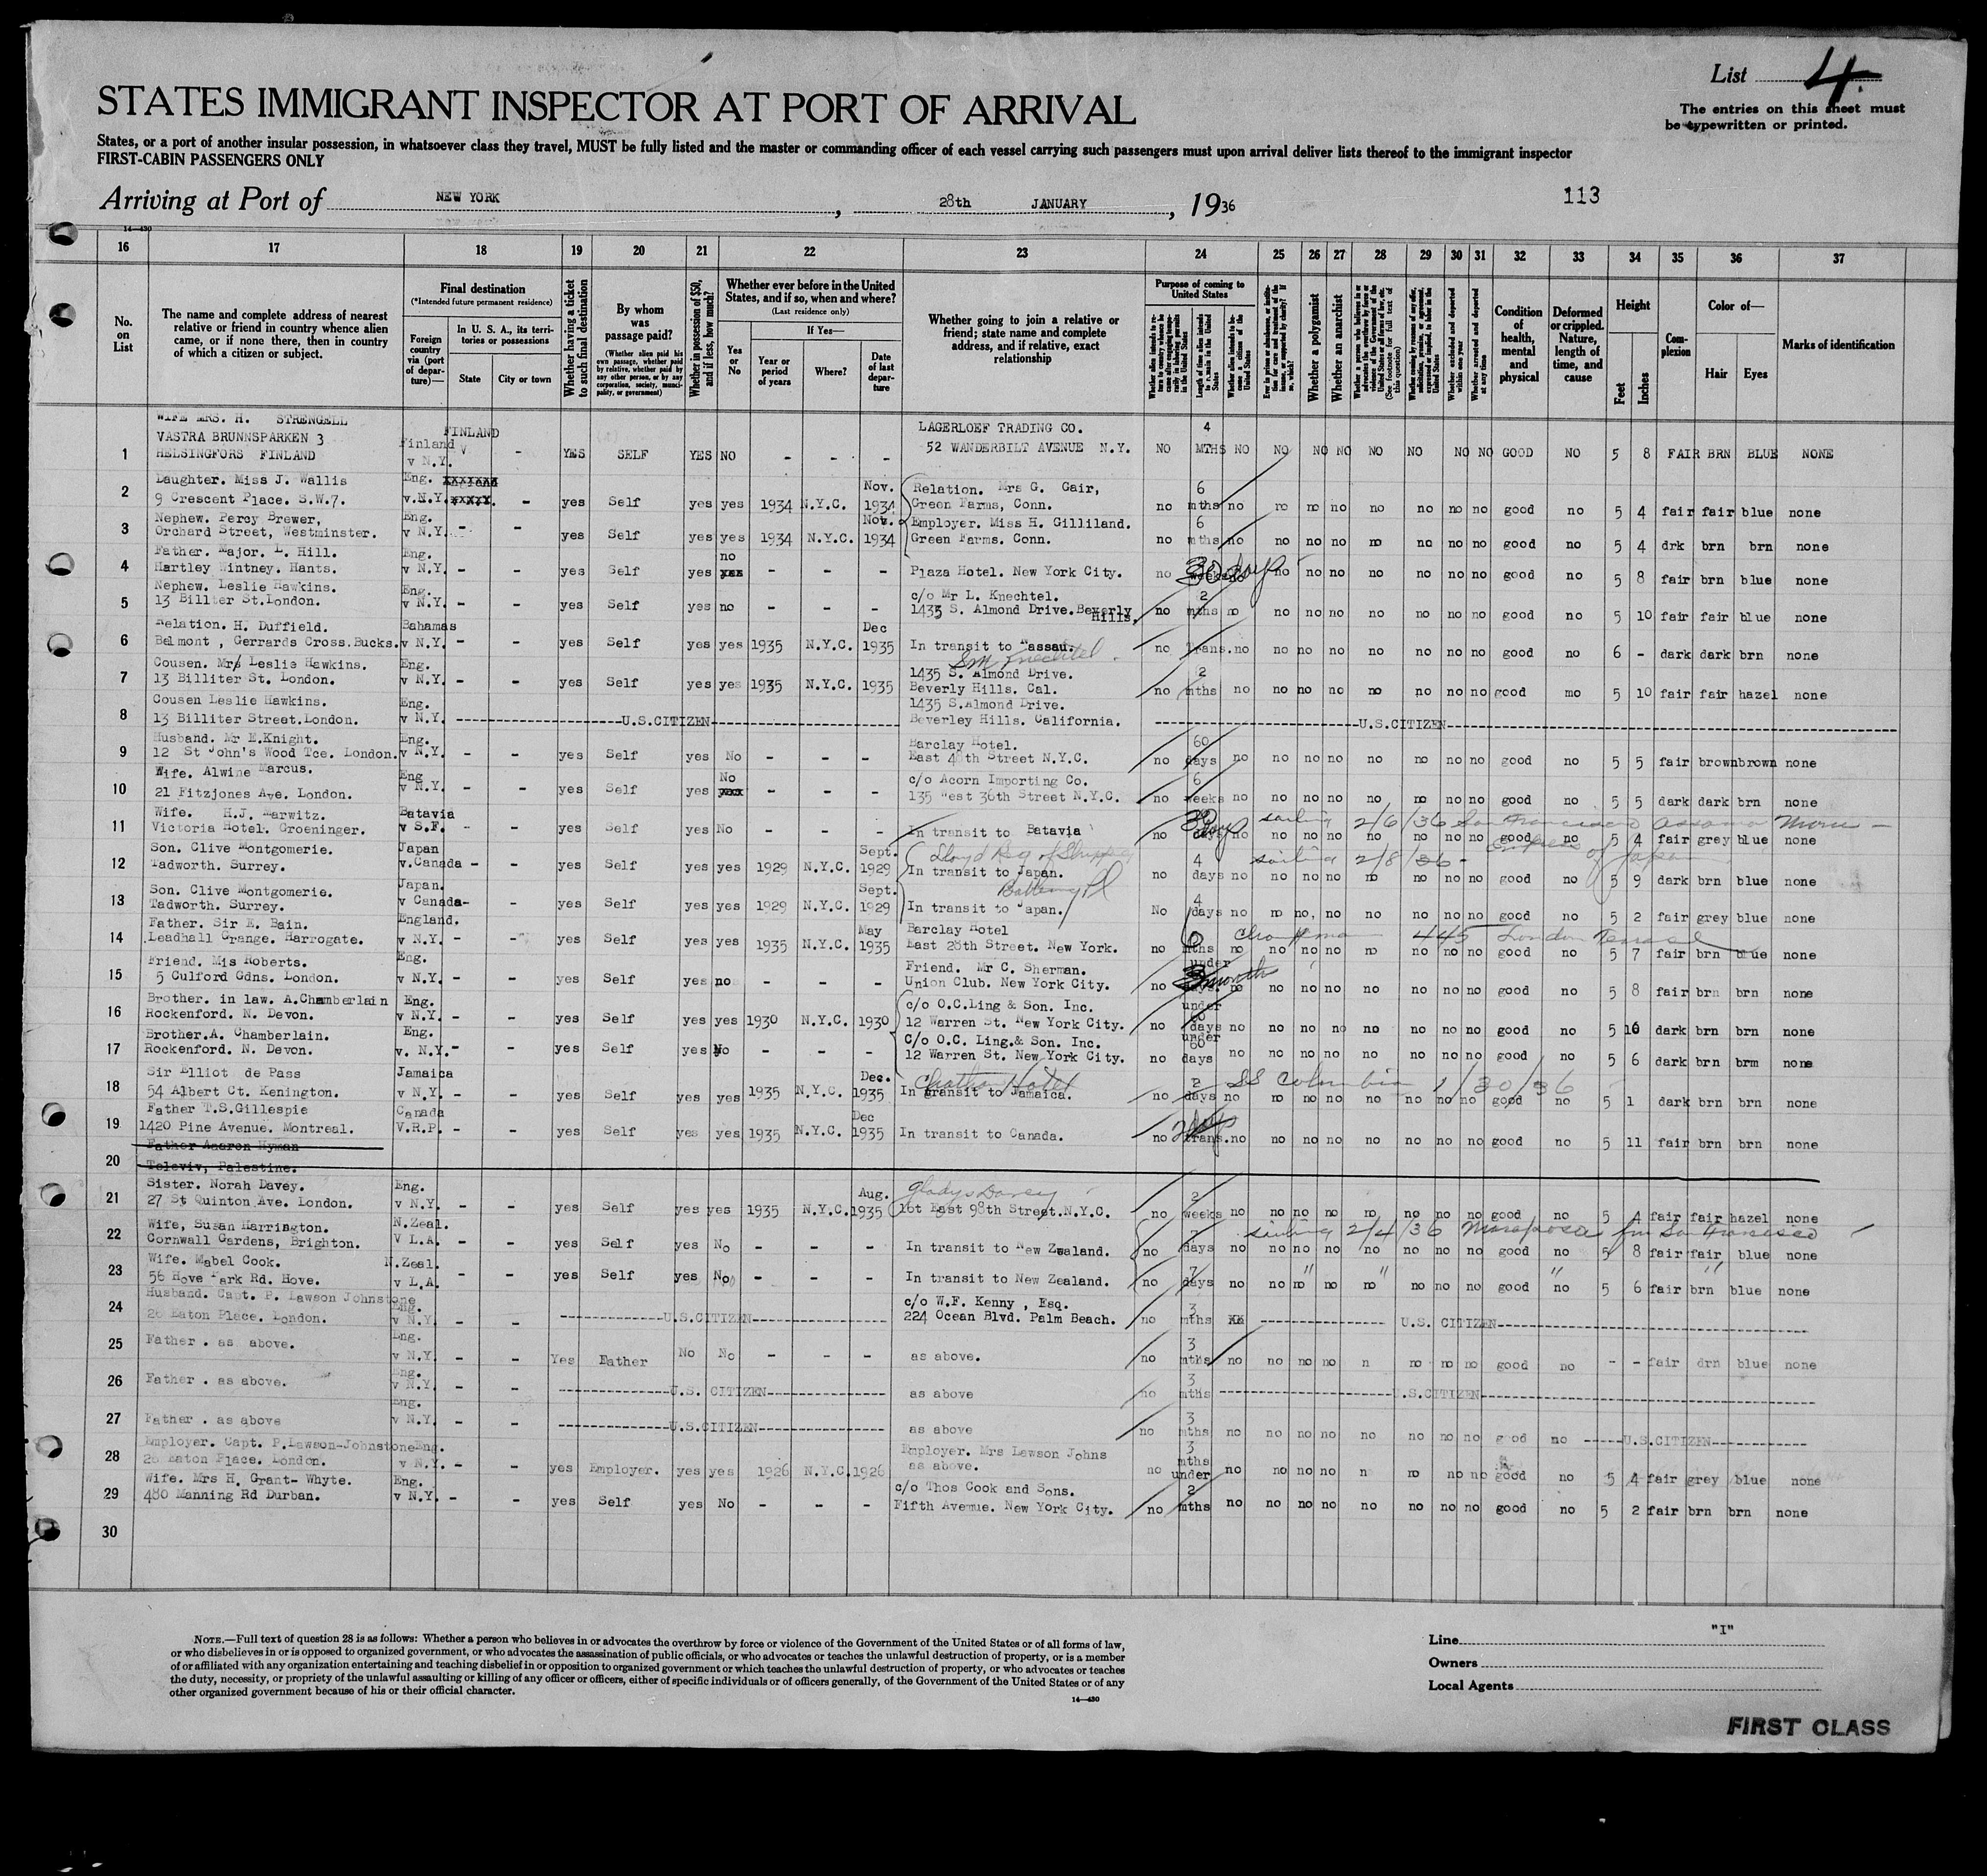 List 4
The entries on this sheet must
be typewritten or printed.
STATES IMMIGRANT INSPECTOR AT PORT OF ARRIVAL
States, or a port of another insular possession, in whatsoever class they travel, MUST be fully listed and the master or commanding officer of each vessel carrying such passengers must upon arrival deliver lists thereof to the immigrant inspector
FIRST-CABIN PASSENGERS ONLY
Arriving at Port of NEW YORK, 28th JANUARY, 1936
113
14—430
16 17 18 19 20 21 22 23 24 25 26 27 28 29 30 31 32 33 34 35 36 37
No. on List
The name and complete address of nearest relative or friend in country whence alien came, or if none there, then in country of which a citizen or subject.
Final destination
(*Intended future permanent residence)
Foreign country via (port of departure)—
In U. S. A., its territories or possessions
State
City or town
Whether having a ticket to such final destination
By whom was passage paid?
(Whether alien paid his own passage, whether paid by relative, whether paid by any other person, or by any corporation, society, municipality, or government)
Whether in possession of $50, and if less, how much?
Whether ever before in the United States, and if so, when and where?
(Last residence only)
Yes or No
If Yes—
Year or period of years
Where?
Date of last departure
Whether going to join a relative or friend; state name and complete address, and if relative, exact relationship
Purpose of coming to United States
Whether a polygamist
Whether an anarchist
Whether excluded and deported within one year
Whether arrested and deported at any time
Condition of health, mental and physical
Deformed or crippled. Nature, length of time, and cause
Height
Feet
Inches
Complexion
Color of—
Hair
Eyes
Marks of identification
WIFE MRS. H. STRENGELL FINLAND LAGERLOEF TRADING CO. 4
VASTRA BRUNNSPARKEN 3 Finland V
1 HELSINGFORS FINLAND v N.Y. - YES SELF YES NO - - - 52 WANDERBILT AVENUE N.Y. NO MTHS NO NO NO NO NO NO NO NO GOOD NO 5 8 FAIR BRN BLUE NONE
Daughter. Miss J. Wallis Eng. Nov. Relation. Mrs G. Gair, 6
2 9 Crescent Place. S.W.7. v.N.Y. - yes Self yes yes 1934 N.Y.C. 1934 Green Farms, Conn. no mths no no no no no no no no good no 5 4 fair fair blue none
Nephew. Percy Brewer, Eng. Nov. Employer. Miss H. Gilliland. 6
3 Orchard Street, Westminster. v N.Y. - - yes Self yes yes 1934 N.Y.C. 1934 Green Farms. Conn. no mths no no no no no no no no good no 5 4 drk brn brn none
Father. Major. L. Hill. Eng. no
4 Hartley Wintney. Hants. v N.Y. - - yes Self yes yes - - - Plaza Hotel. New York City. no 30 days no no no no no no no good no 5 8 fair brn blue none
Nephew. Leslie Hawkins. Eng. c/o Mr L. Knechtel. 2
5 13 Billter St.London. v N.Y. - - yes Self yes no - - - 1435 S. Almond Drive.Beverly Hills. no mths no no no no no no no no good no 5 10 fair fair blue none
Relation. H. Duffield. Bahamas Dec
6 Belmont , Gerrards Cross.Bucks. v N.Y. - - yes Self yes yes 1935 N.Y.C. 1935 In transit to Nassau. no Trans. no no no no no no no no good no 6 - dark dark brn none
Cousen. Mrs Leslie Hawkins. Eng. 1435 S. Almond Drive. 2
7 13 Billiter St. London. v N.Y. - - yes Self yes yes 1935 N.Y.C. 1935 Beverly Hills. Cal. no mths no no no no no no no no good mo 5 10 fair fair hazel none
Cousen Leslie Hawkins. Eng. 1435 S.Almond Drive.
8 13 Billiter Street.London. v N.Y. U.S.CITIZEN Beverley Hills. California. U.S.CITIZEN
Husband. Mr E.Knight. Eng. Barclay Hotel. 60
9 12 St John's Wood Tce. London. v N.Y. - - yes Self yes No - - - East 48th Street N.Y.C. no days no no no no no no no no good no 5 5 fair brown brown none
Wife. Alwine Marcus. Eng No c/o Acorn Importing Co. 6
10 21 Fitzjones Ave. London. v N.Y. - - yes Self yes - - - 135 West 36th Street N.Y.C. no weeks no no no no no no no no good no 5 5 dark dark brn none
Wife. H.J. Marwitz. Batavia 30 days sailing 2/6/36 San Francisco Asama Maru
11 Victoria Hotel. Groeninger. v S.F. - - yes Self yes No - - - In transit to Batavia no days no no no no no no no no good no 5 4 fair grey blue none
Son. Clive Montgomerie. Japan Sept. 4 sailing 2/8/36 - Empress of Japan
12 Tadworth. Surrey. v.Canada - - yes Self yes yes 1929 N.Y.C. 1929 In transit to Japan. no days no no no no no no no no good no 5 9 dark brn blue none
Son. Clive Montgomerie. Japan. Sept. Battery Pl 4
13 Tadworth. Surrey. v Canada - - yes Self yes yes 1929 N.Y.C. 1929 In transit to Japan. No days no no no, no no no no no good no 5 2 fair grey blue none
Father. Sir E. Bain. England. May Barclay Hotel 445 London Terrace
14 Leadhall Grange. Harrogate. v N.Y. - - yes Self yes yes 1935 N.Y.C. 1935 East 28th Street. New York. no 6 mths no no no no no no no no good no 5 7 fair brn blue none
Friend. Mis Roberts. Eng. Friend. Mr C. Sherman. under
15 5 Culford Gdns. London. v N.Y. - - yes Self yes no - - - Union Club. New York City. no 3 month no no no no no no no no good no 5 8 fair brn brn none
Brother. in law. A.Chamberlain Eng. c/o O.C.Ling & Son. Inc. under 60
16 Rockenford. N. Devon. v N.Y. - - yes Self yes yes 1930 N.Y.C. 1930 12 Warren St. New York City. no days no no no no no no no no good no 5 10 dark brn brn none
Brother.A. Chamberlain. Eng. C/o O.C. Ling.& Son. Inc. under 60
17 Rockenford. N. Devon. v. N.Y. - - yes Self yes No - - - 12 Warren St. New York City. no days no no no no no no no no good no 5 6 dark brn brm none
Sir Elliot de Pass Jamaica Dec. Chatham Hotel 2 SS Colombia 1/30/36
18 54 Albert Ct. Kenington. v N.Y. - - yes Self yes yes 1935 N.Y.C. 1935 In transit to Jamaica. no days no no no no no no no no good no 5 1 dark brn brn none
Father T.S.Gillespie Canada Dec 2 days
19 1420 Pine Avenue. Montreal. V.R.P. - - yes Self yes yes 1935 N.Y.C. 1935 In transit to Canada. no trans. no no no no no no no no good no 5 11 fair brn brn none
Father Aaaron Hyman
20 Televiv, Palestine.
Sister. Norah Davey. Eng. Aug. Gladys Davey 2
21 27 St Quinton Ave. London. v N.Y. - - yes Self yes yes 1935 N.Y.C. 1935 16t East 98th Street.N.Y.C. no weeks no no no no no no no no good no 5 4 fair fair hazel none
Wife, Susan Harrington. N.Zeal. 7 sailing 2/4/36 Mariposa fm San Francisco
22 Cornwall Gardens, Brighton. V L.A. - - yes Self yes No - - - In transit to New Zealand. no days no no no no no no no no good no 5 8 fair fair blue none
Wife. Mabel Cook. N.Zeal. 7 " " " "
23 56 Hove Park Rd. Hove. v L.A. - - yes Self yes No - - - In transit to New Zealand. no days no no no no no no no no good no 5 6 fair brn blue none
Husband. Capt. P. Lawson Johnstone Eng. c/o W.F. Kenny , Esq. 3
24 26 Eaton Place. London. v N.Y. - - U.S.CITIZEN 224 Ocean Blvd. Palm Beach. no mths U.S. CITIZEN
Eng. 3
25 Father . as above. v N.Y. - - Yes Father No No - - - as above. no mths no no no no n no no no good no - - fair drn blue none
Eng. 3
26 Father . as above. v N.Y. - - U.S. CITIZEN as above no mths U.S.CITIZEN
Eng. 3
27 Father . as above v N.Y. - - U.S.CITIZEN as above no mths no no no no no no no no good no U.S.CITIZEN
Employer. Capt. P.Lawson-Johnstone Eng. Employer. Mrs Lawson Johns 3 mths
28 26 Eaton Place. London. v N.Y. - - yes Employer. yes yes 1926 N.Y.C. 1926 as above. no no no no no n no no no good no 5 4 fair grey blue none
Wife. Mrs H. Grant- Whyte. Eng. c/o Thos Cook and Sons. under 2
29 480 Manning Rd Durban. v N.Y. - - yes Self yes No - - - Fifth Avenue. New York City. no mths no no no no no no no no good no 5 2 fair brn brn none
30
NOTE.—Full text of question 28 is as follows: Whether a person who believes in or advocates the overthrow by force or violence of the Government of the United States or of all forms of law,
or who disbelieves in or is opposed to organized government, or who advocates the assassination of public officials, or who advocates or teaches the unlawful destruction of property, or is a member
of or affiliated with any organization entertaining and teaching disbelief in or opposition to organized government or which teaches the unlawful destruction of property, or who advocates or teaches
the duty, necessity, or propriety of the unlawful assaulting or killing of any officer or officers, either of specific individuals or of officers generally, of the Government of the United States or of any
other organized government because of his or their official character.
14—430
Line "I"
Owners
Local Agents
FIRST CLASS